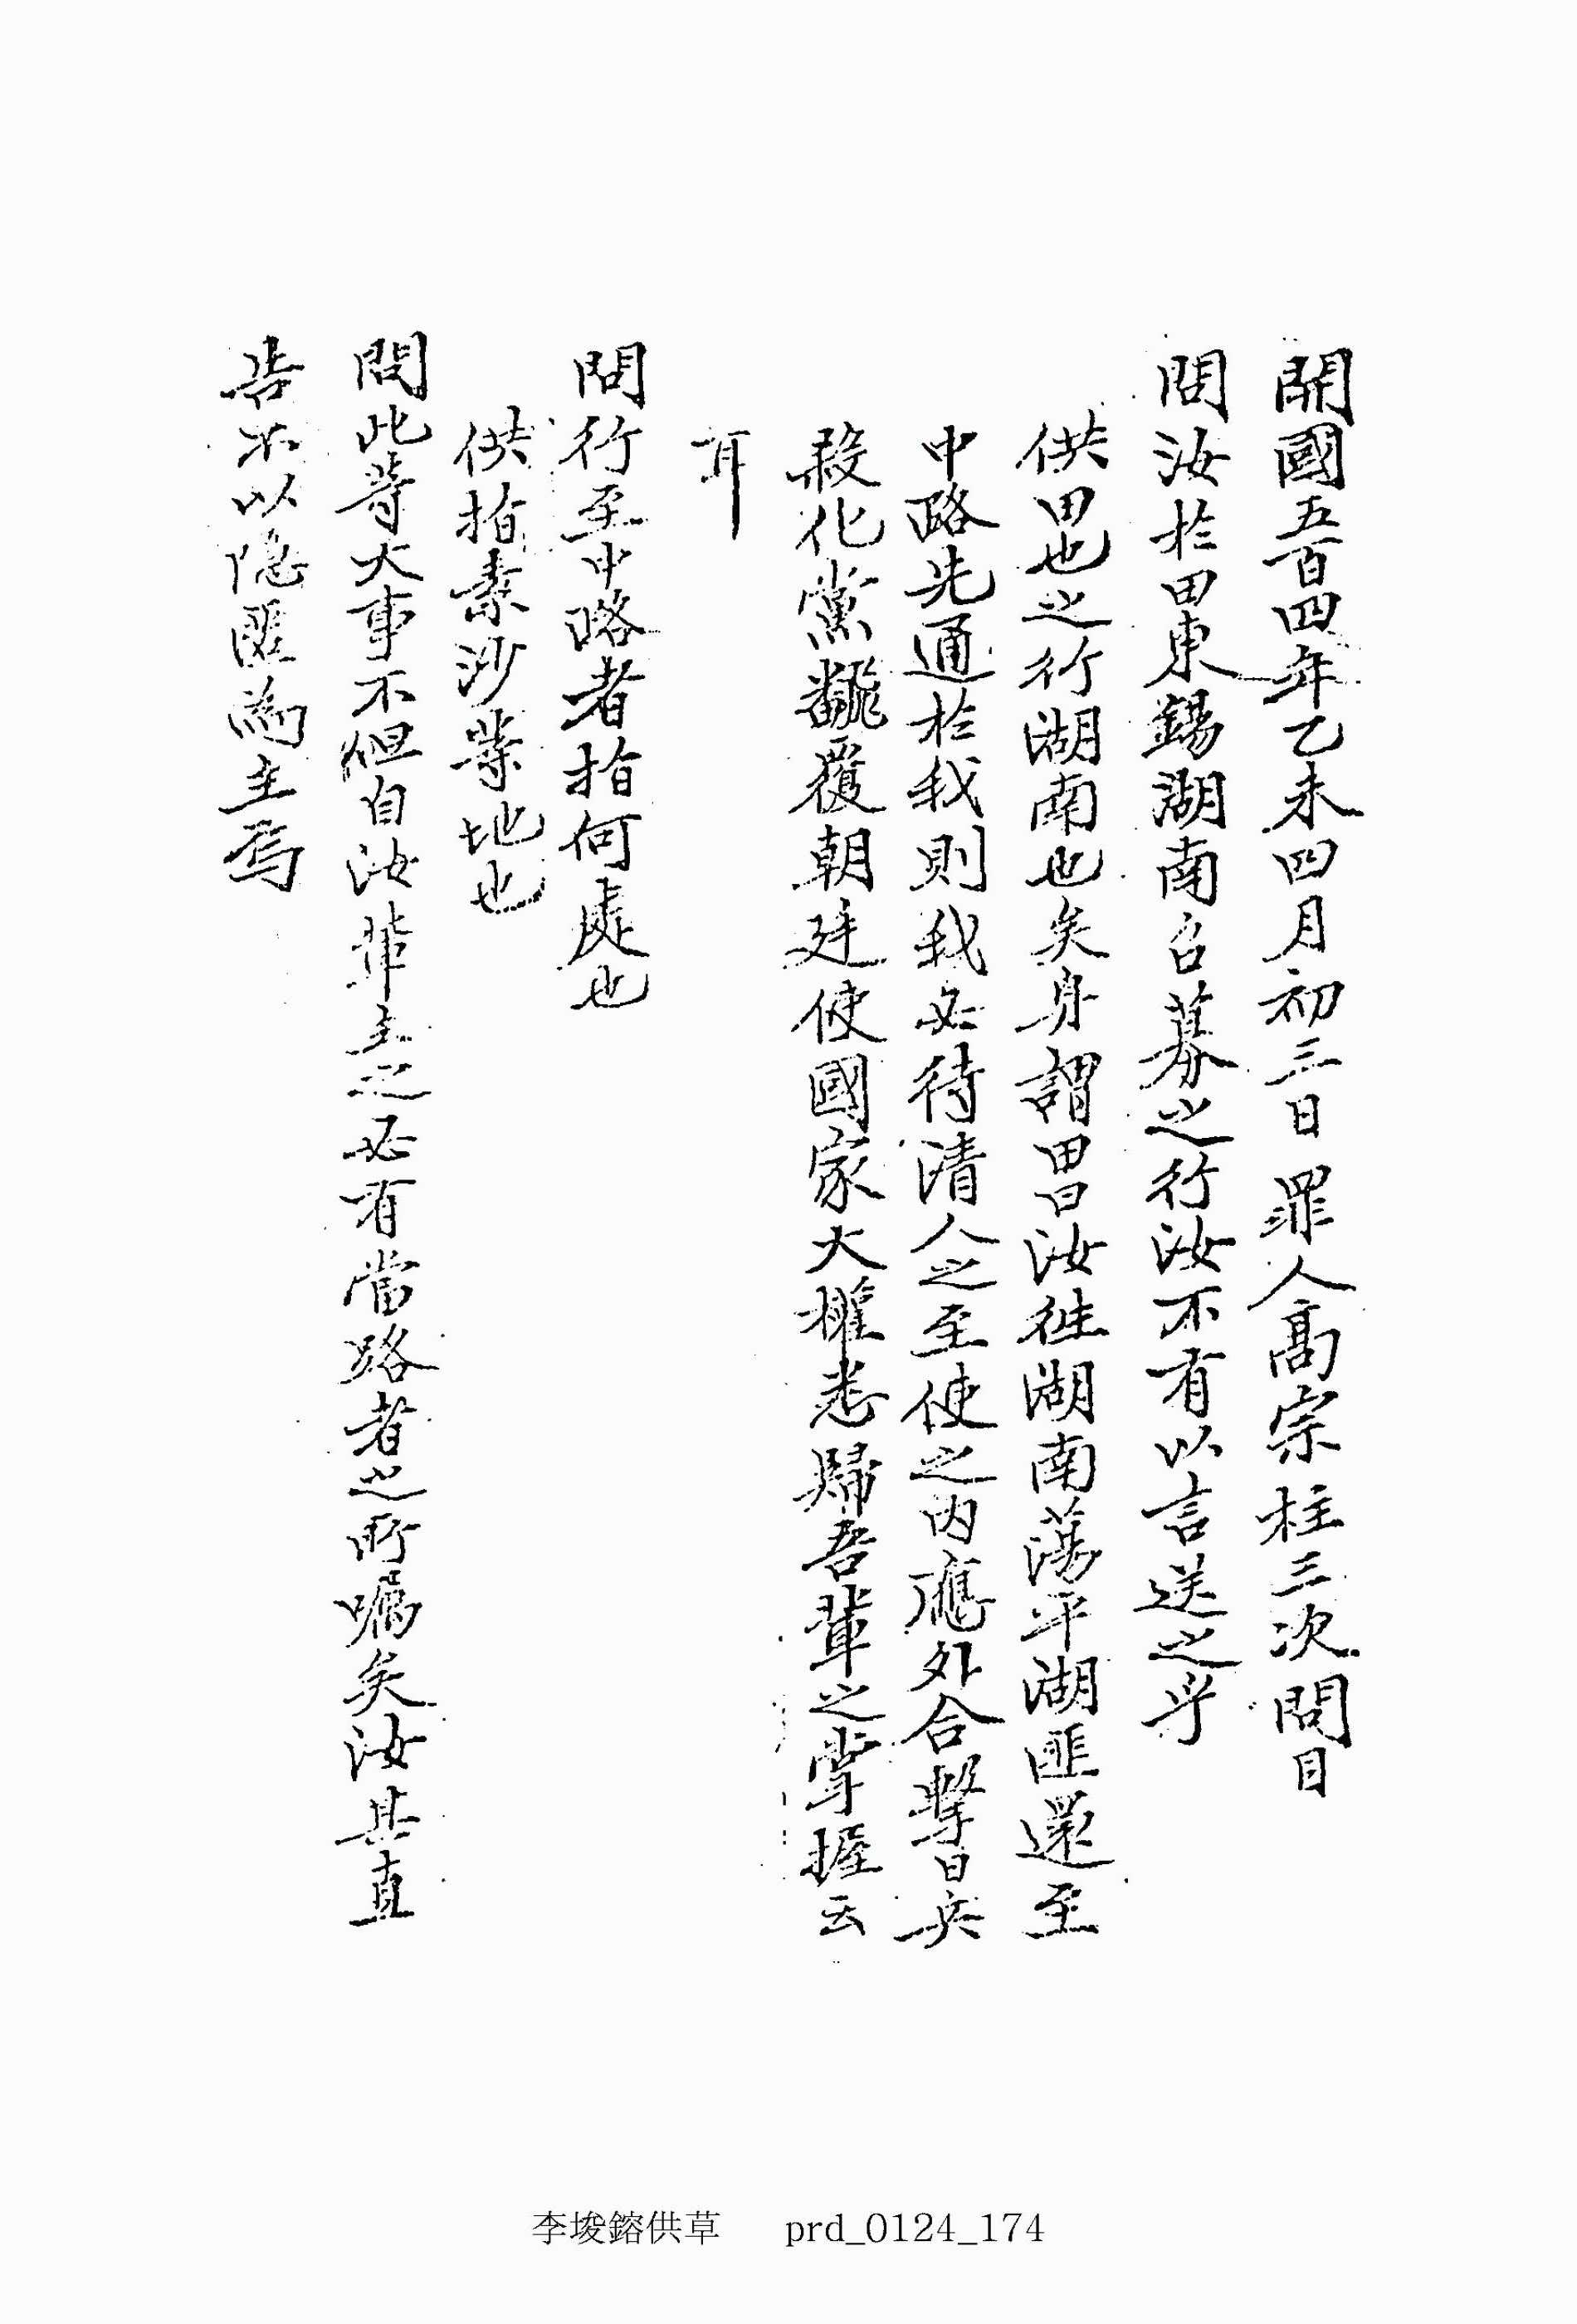 開國五百四年乙未四月初三日罪人高宗柱三次問目
問汝於田東錫湖南召募之行汝不有以言送之乎
供田也之行湖南也矣身謂田曰汝徃湖南蕩平湖匪還至
中路先通於我則我必待淸人之至使之內應外合擊日兵
殺化黨飜覆朝廷使國家大權悉歸吾輩之掌握云
耳
問行至中路者指何處也
供指素沙等地也
問此等大事不但自汝輩主之必有當路者之所囑矣汝其直
告不以隱匿爲主焉
李埈鎔供草 prd_0124_174